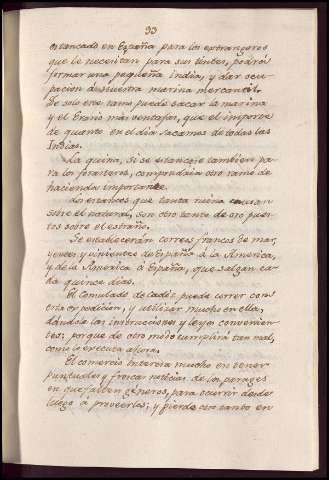 33
estancado en España para los extrangeros
que le necesitan para sus tintes, podrá
formar una pequeña Indias, y dar ocu-
pacion à nuestra marina mercantil.
De solo este ramo puede sacar la marina
y el Erario mas ventajas, que el importe
de quanto en el dia sacamos de todas las
Indias.
La quina, si se estancase tambien pa-
ra los forasteros, compondria otro ramo de
hacienda importante.
Los estancos que tanta ruina causan
sobre el natural, son otro tanto de oro pues-
tos sobre el estraño.
Se establecerán correos francos de mar,
yentes y vinientes de España à la America,
y de la America à España, que salgan ca-
da quince dias.
El Consulado de Cadiz puede correr con
esta expedicion, y utilizar mucho en ella,
dándole las instrucciones y leyes convenien-
tes; porque de otro modo cumplirá tan mal,
como lo executa ahora.
El comercio interesa mucho en tener
puntuales y frescas noticias de los parages
en que falten géneros, para ocurrir desde
luego à proveerlos; y pierde otro tanto en